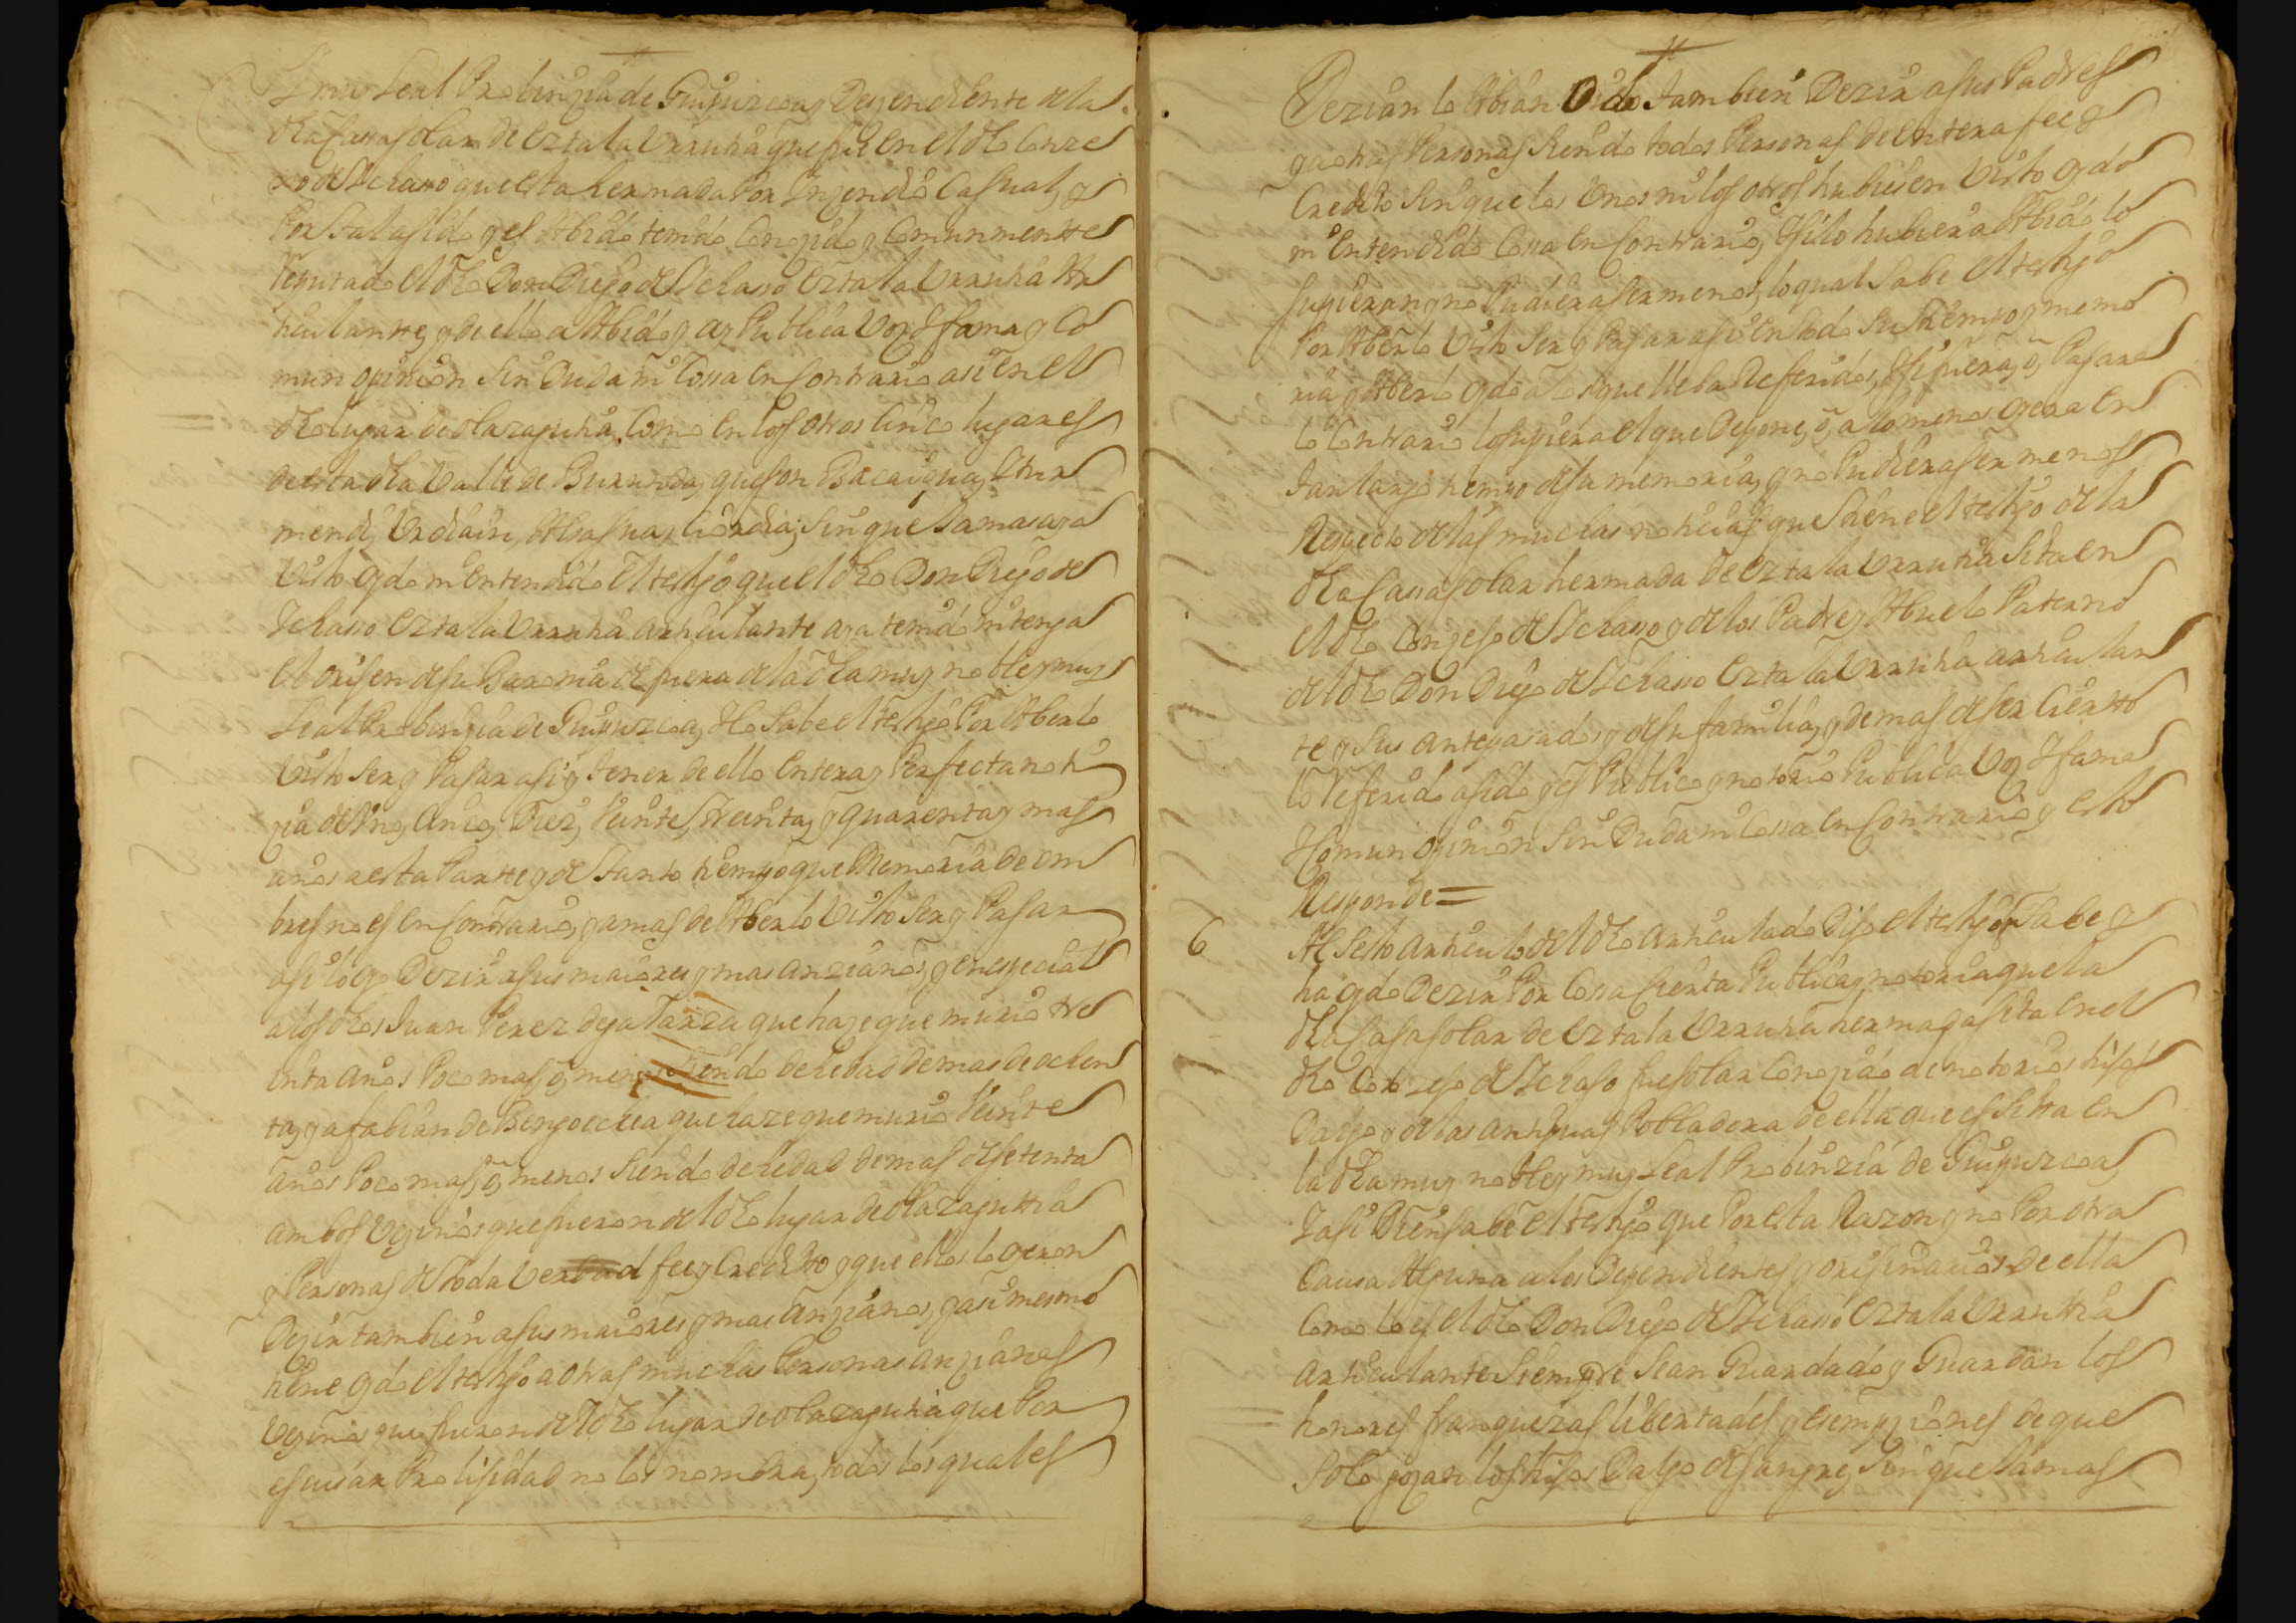 Y muy Leal Probinçia de Guipuzcoa y Dependiente de la
dha Cassa solar de Oztala Urrutia que fue en el dho Conze
xo de Ichasso que esta hermada Por Inzendio Casual, y
Por tal a sido y es Abido tenido Conoçido y Comunmente
Reputado el dho Don Diego de Ichasso Oztala Urrutia Ar
ticulante, y de ello a Abido y ay Publica Voz Y fama y Co
mun opinion sin Duda ni Cossa en Contrario asi en el
dho lugar de olazagutia, Como en los otros Cinco lugares
de esta dha Valle de Burunda, que son Bacaicua, Itur
mendi, Urdiain, Alsasua, y Ciordia; sin que Jamas aya
Visto oydo ni Entendido el testigo que el dho Don Diego de
Ichasso Oztala Urrutia articulante aya tenido ni tenga
el orisen de su Baronia de fuera de la dha muy noble y muy
Leal Probinçia de Guipuzcoa, Y lo Sabe el testigo Por Aberlo
Visto ser y Pasar asi y tener de ello Entera y Perfecta noti
çia de Uno, Cinco, Diez, Veinte, treinta, y quarenta y mas
años a esta Parte y de tanto tiempo que Memoria de om
bres no es en Contrario, y a mas de Aberlo Visto ser y Pasar
asi lo oyo Dezir a sus maiores y mas anzianos, y en espeçial
a los dhos Juan Perez de galarza que haze que murio tre
inta años Poco mas, o, menos siendo de hedad de mas de ochen
ta, y a fabian de Bengoechea que haze que murio Veinte
años Poco mas, o, menos siendo de hedad de mas de setenta
ambos Veçinos que fueron del dho lugar de olazagutia
y Personas de toda Verdad fee y Credito y que ellos lo oyeron
Deçir tambien a sus maiores y mas ançianos, y asi mesmo
tiene oydo el testigo a otras muchas Personas ançianas
Veçinos que fueron del dho lugar de olazagutia que Por
escusar Prolisidad no los nombra, todos los quales
Dezian lo Abian Oido tambien Dezir a sus Padres
y a otras Personas siendo todos Personas de entera fee y
Credito sin que los Unos ni los otros hubiesen Visto oydo
ni Entendido Cossa en Contrario, Y si lo hubiera Abido lo
supieran y no Pudiera ser menos, lo qual Sabe el testigo
Por Aberlo Visto ser y Pasar asi en todo su tiempo y memo
ria y Aberlo oydo a los que lleba Referidos, Y si fuera, o, Pasara
lo Contrario lo supiera el que Depone, o, a lo menos oyera en
tan largo tiempo de su memoria, y no Pudiera ser menos
Respecto de las muchas notiçias que tiene el testigo de la
dha Cassa solar hermada de Oztala Urrutia sita en
el dho Conçejo de Ichasso y de los Padre y Abuelo Paterno
del dho Don Diego de Ichasso Oztala Urrutia articulan
te y sus antepasados y de su familia, y demas de ser Cierto
lo Referido a sido y es Publico y notorio Publica Voz Y fama
Y Comun opinion sin Duda ni Cossa en Contrario y esto
Responde =
6 Al Sesto articulo del dho articulado Dijo el testigo Sabe y
ha oydo Dezir Por Cossa cierta Publica y notoria que la
dha Casa solar de Oztala Urrutia hermada sita en el
dho Conzejo de Ichaso fue solar Conoçido de notorios hijos
Dalgo y de las antiguas Pobladora de ella que es sita en
la dha muy noble y muy Leal Probinzia de Guipuzcoa,
Y asi Bien sabe el testigo que Por esta Razon y no Por otra
Causa Alguna a los Dependientes y orisinarios de ella
Como lo es el dho Don Diego de Ichasso Oztala Urrutia
articulante Siempre se an Guardado y Guardan los
honores franquezas libertades y esempçiones de que
Solo goçan los hijos Dalgo de sangre, Sin que Jamas